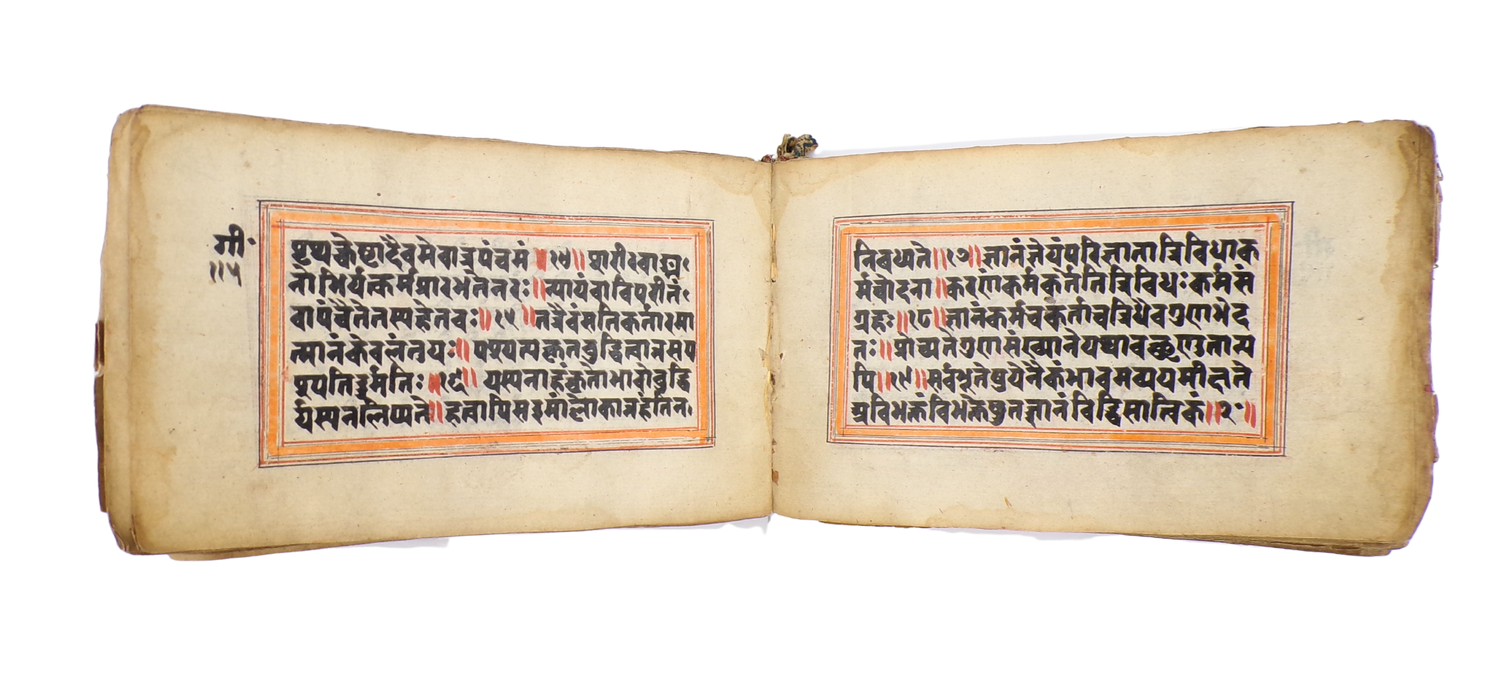 गी॰
११५
पृथक्चेष्टादैवमेवात्रपंचमं॥१४॥शरीरवाङ्म
नोभिर्यत्कर्मप्रारभतेनरः॥न्यायंवाविपरीतं
वापंचैतेतस्यहेतवः॥१५॥तत्रैवंसतिकर्तारमा
त्मानंकेवलंतुयः॥पश्यत्यकृतबुद्धित्वान्नसप
श्यतिदुर्मतिः॥१६॥यस्यनाहंकृतोभावोबुद्धि
र्यस्यनलिप्यते॥हत्वापिसइमांलोकान्नहंतिन
निबध्यते॥१७॥ज्ञानंज्ञेयंपरिज्ञातात्रिविधाक
र्मचोदना॥करणंकर्मकर्तेतित्रिविधःकर्मसं
ग्रहः॥१८॥ज्ञानंकर्मचकर्ताचत्रिधैवगुणभेद
तः॥प्रोच्यतेगुणसंख्यानेयथावच्छृणुतान्य
पि॥१९॥सर्वभूतेषुयेनैकंभावमव्ययमीक्षते
अविभक्तंविभक्तेषुतज्ञानंविद्धिसात्विकं॥२॰॥